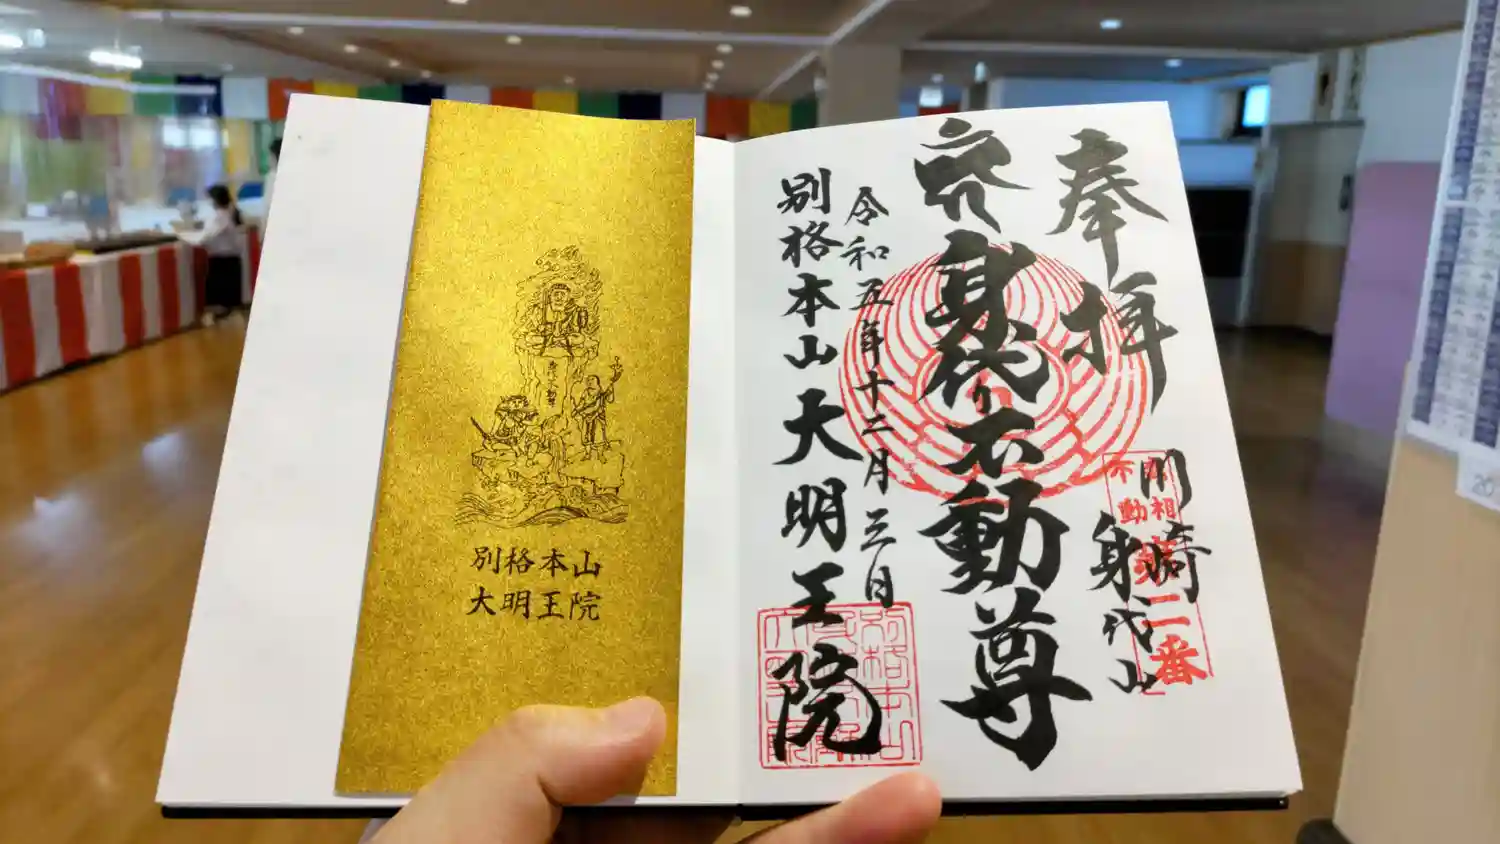 奉拝
川崎
身代山
身代り不動尊
令和五年十二月三日
別格本山大明王院
関相
不動
第二番
別格本山
大明王院
20